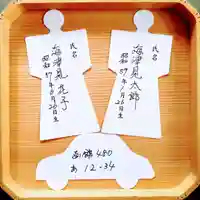 氏名
海津見 太郎
昭和57年1月26日生
氏名
海津見 花子
昭和57年6月26日生
函館 480
あ 12-34